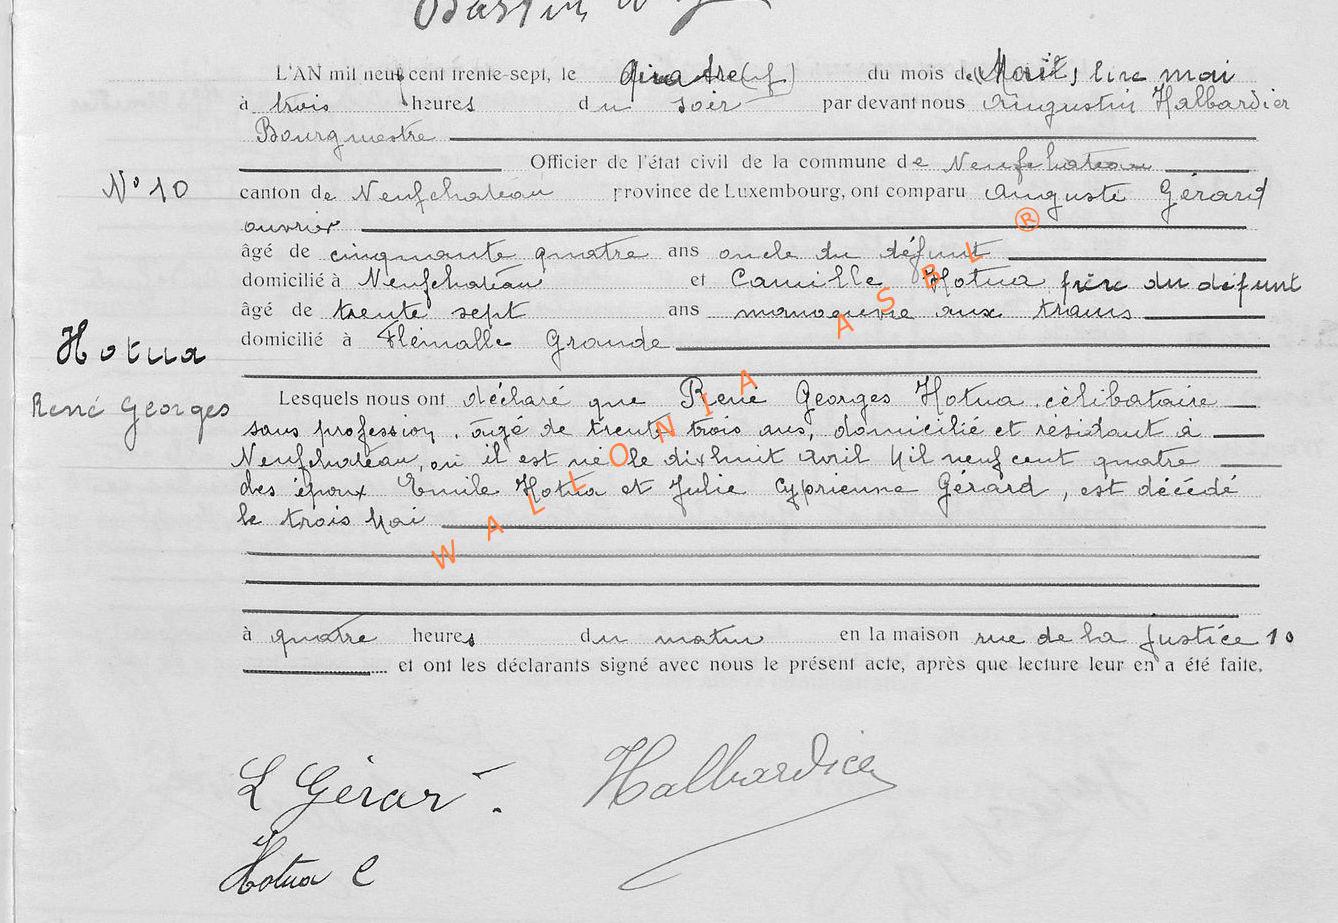 L'AN mil neuf cent trente-sept, le quatre du mois de Mai, lire mai
à trois heures du soir par devant nous Augustin Halbardier
Bourgmestre
Officier de l'état civil de la commune de Neufchateau
N° 10
canton de Neufchateau province de Luxembourg, ont comparu Auguste Gérard
ouvrier
âgé de cinquante quatre ans oncle du défunt
domicilié à Neufchateau et Camille Hotua frère du défunt
âgé de trente sept ans manoeuvre aux trams
domicilié à Flémalle Grande
Hotua
René Georges
Lesquels nous ont déclaré que René Georges Hotua célibataire
sans profession, âgé de trente trois ans, domicilié et résidant à
Neufchateau, où il est né le dix huit avril Mil neuf cent quatre
des époux Emile Hotua et Julie Cyprienne Gérard, est décédé
le trois Mai
WALLONIA ASBL ®
à quatre heures du matin en la maison rue de la Justice 10
et ont les déclarants signé avec nous le présent acte, après que lecture leur en a été faite.
L Gérard. Halbardier
Hotua C